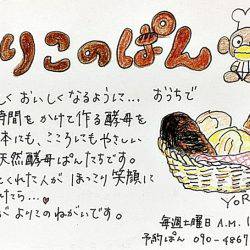 りこのぱん
しく おいしく なるように… おうちで
時間を かけて 作る 酵母を
本にも、こころにも やさしい
天然酵母ぱんたちです。
とくれた人が ほっこり 笑顔に
れたら…♥
が よりこの ねがいです。
YOR
毎週土曜日 A.M. 1
予約ぱん 090-4867